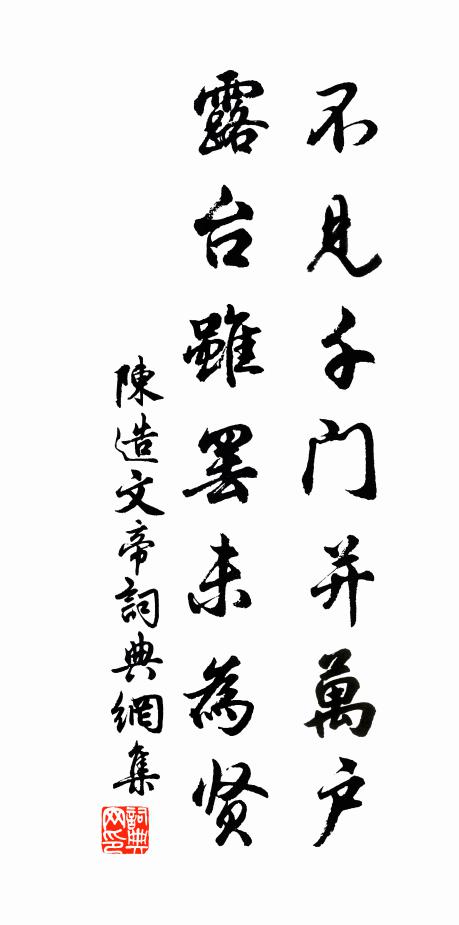 不見千门并萬户
露台雖罢未為贤
陳造文帝詞典網集
詞典网印